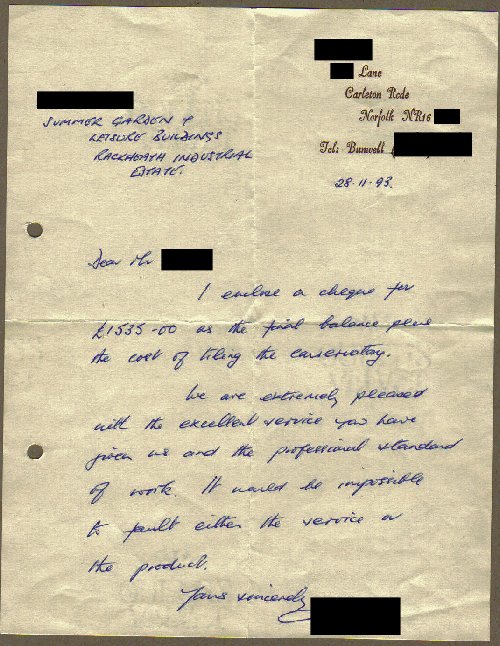 Lane
Carleton Rode
Norfolk NR16
Tel: Bunwell
SUMMER GARDEN &
LEISURE BUILDINGS
RACKHEATH INDUSTRIAL
ESTATE.
28-11-93.
Dear Mr
I enclose a cheque for
£1535-00 as the final balance plus
the cost of tiling the conservatory.
We are extremely pleased
with the excellent service you have
given us and the professional standard
of work. It would be impossible
to fault either the service or
the product.
Yours sincerely